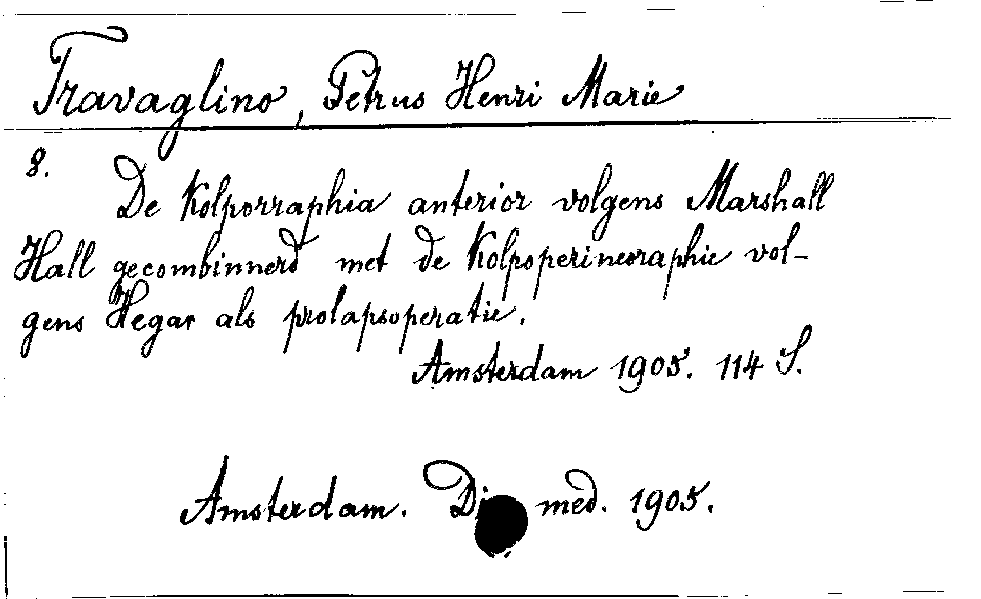 Travaglino, Petrus Henri Marie
8.
De Kolporraphia anterior volgens Marshall
Hall gecombinnerd met de Kolpoperineoraphie vol-
gens Hegar als prolapsoperatie.
Amsterdam 1905. 114 S.
Amsterdam. Di med. 1905.